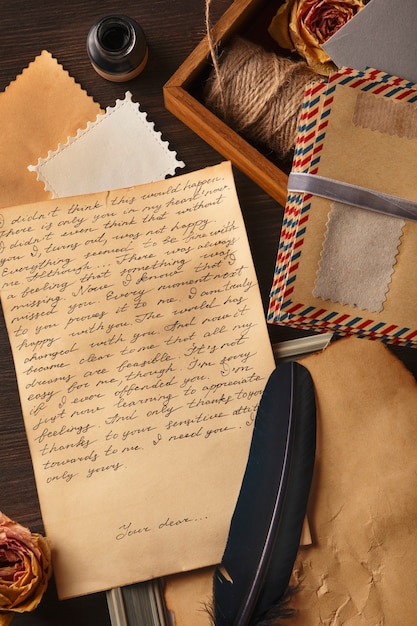 I didn't think this would happen.
There is only you in my heart now.
I didn't even think that without
you I, turns out, was not happy.
Everything seemed to be fine with
me although... There was always
a feeling that something was
missing. Now I know that I
missed you. Every moment next
to you proves it to me. I am truly
happy with you. The world has
changed with you. And now it
became clear to me that all my
dreams are feasible. It's not
easy for me, though. I'm sorry
if I ever offended you. I'm
just now learning to appreciate
feelings. And only thanks to you
thanks to your sensitive
towards to me. I need you. I
only yours.
Your dear...